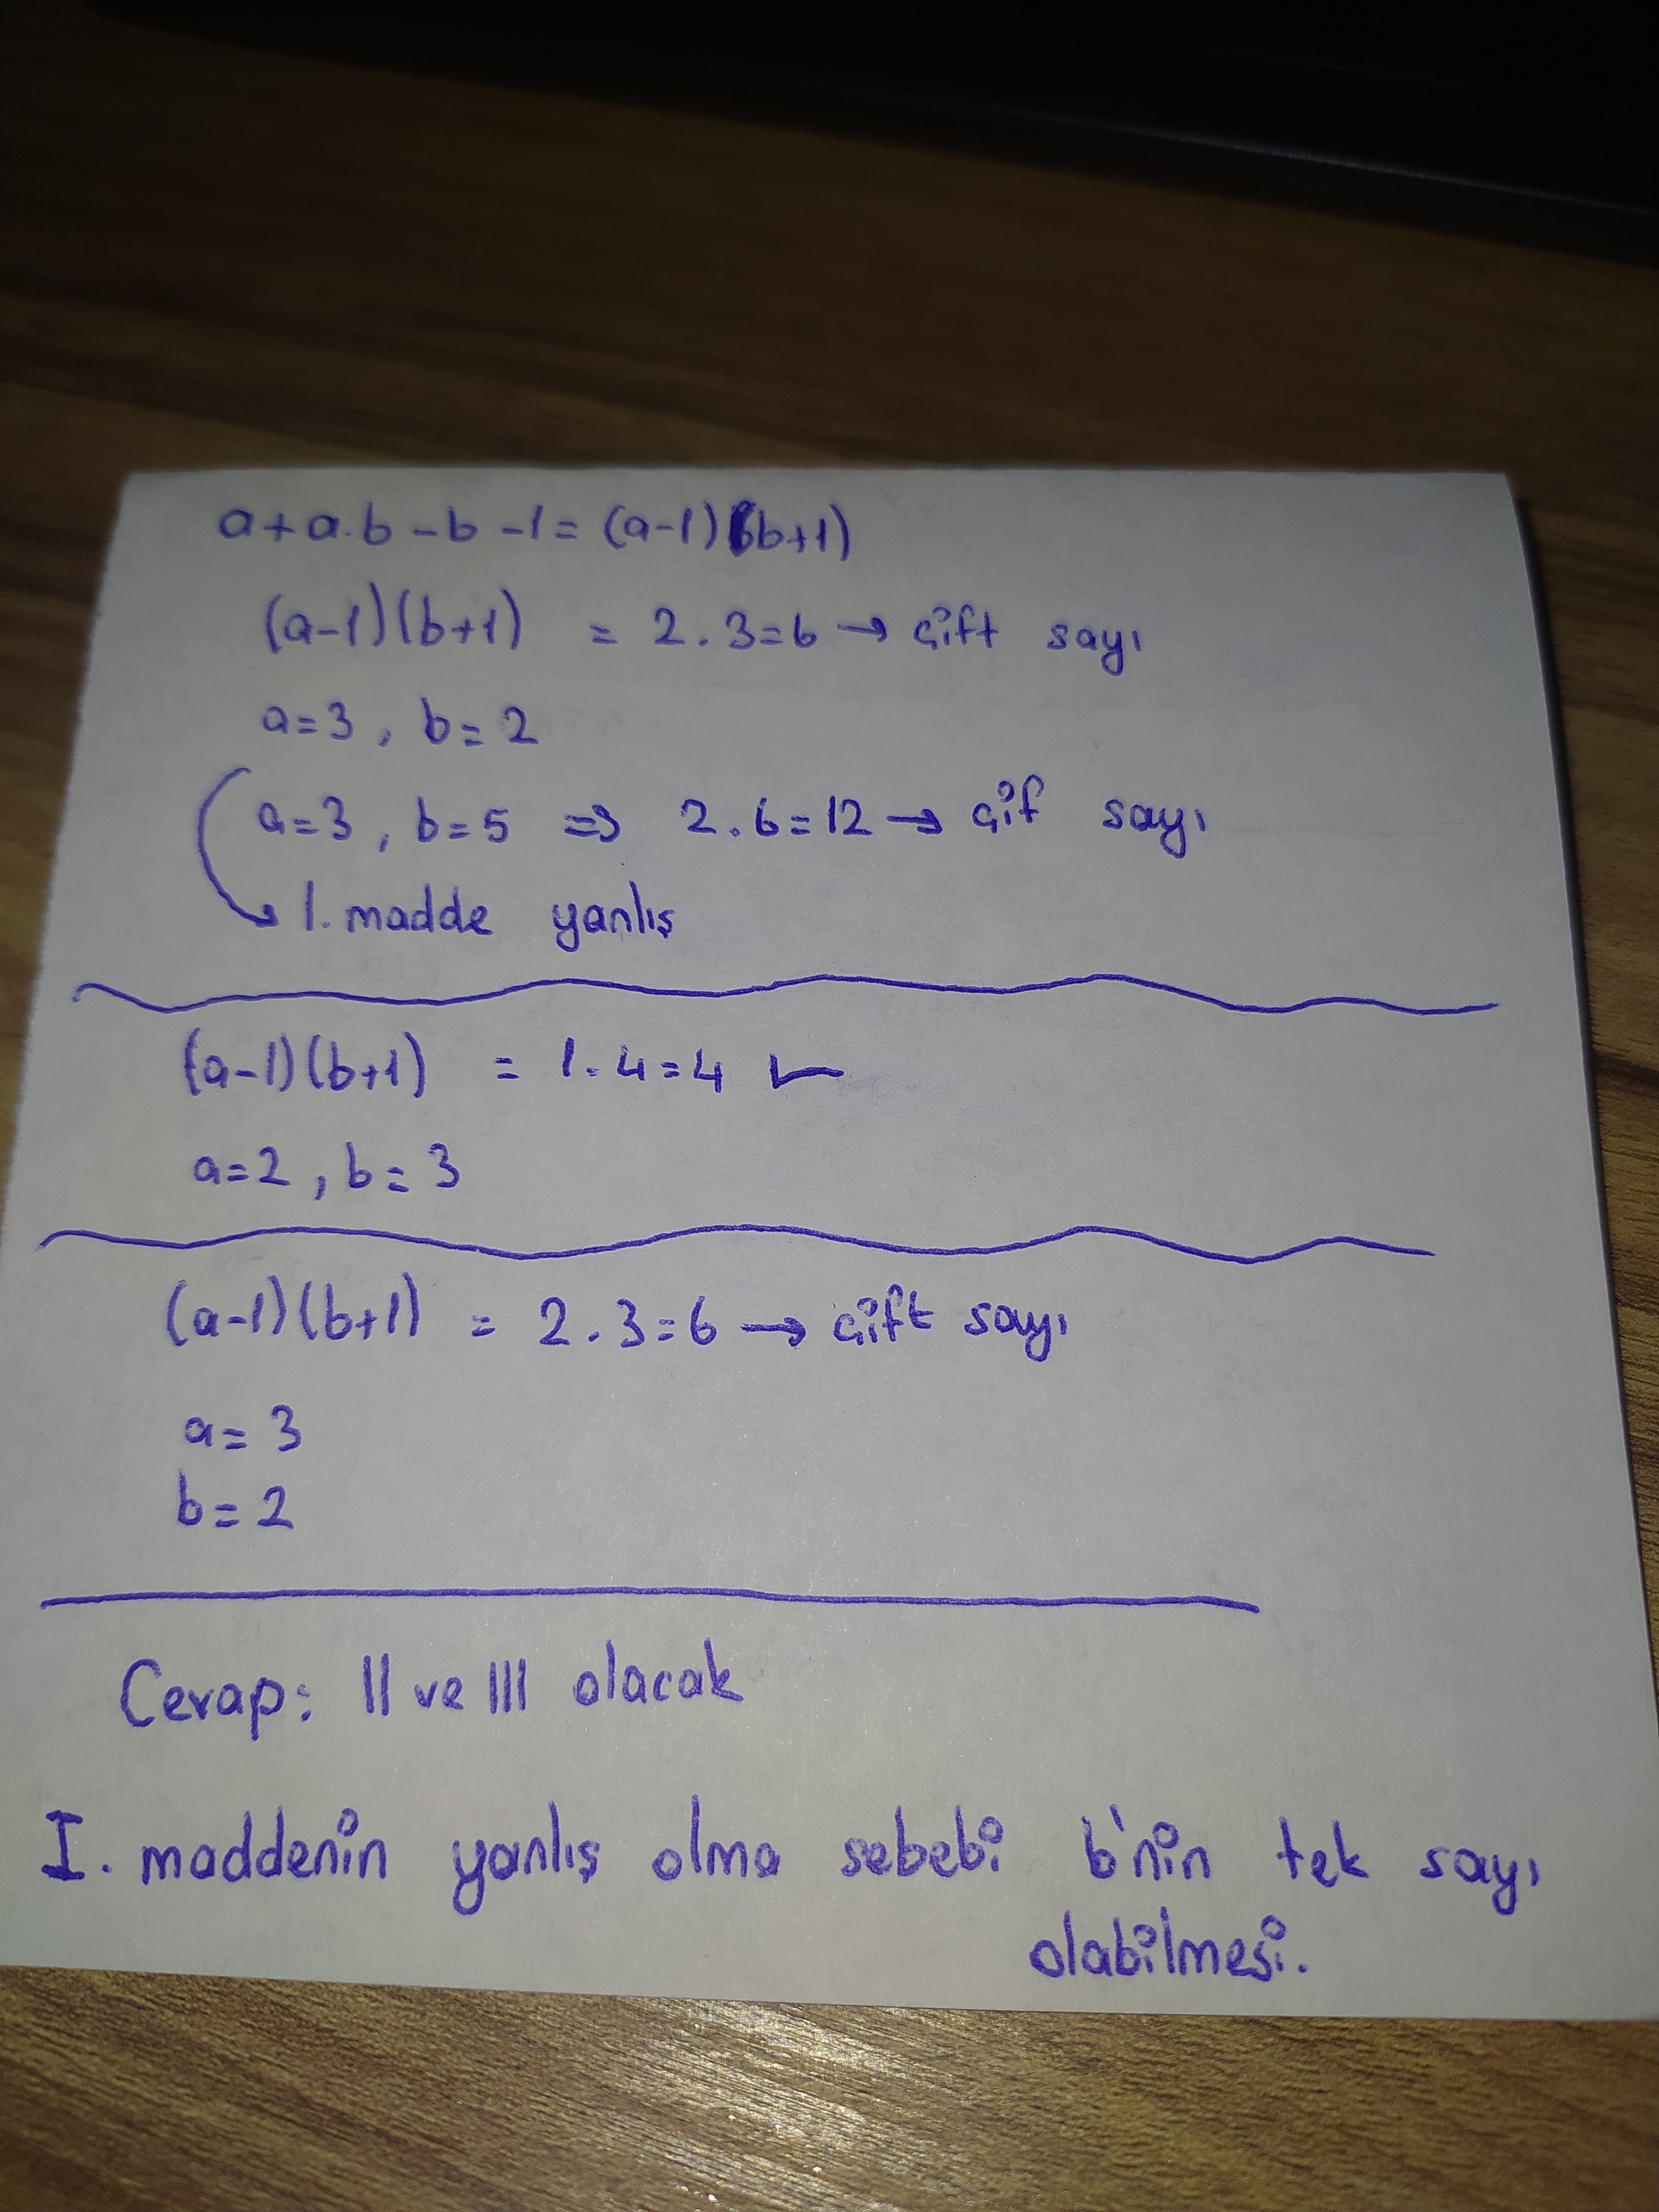 a+a.b-b-1=(a-1)(b+1)
(a-1)(b+1) = 2.3=6→ çift sayı
a=3, b=2
a=3, b=5 => 2.6=12→ çif sayı
→ I. madde yanlış
(a-1)(b+1) = 1.4=4 ✓
a=2, b=3
(a-1)(b+1) = 2.3=6→ çift sayı
a=3
b=2
Cevap: II ve III olacak
I. maddenin yanlış olma sebebi b'nin tek sayı
olabilmesi.